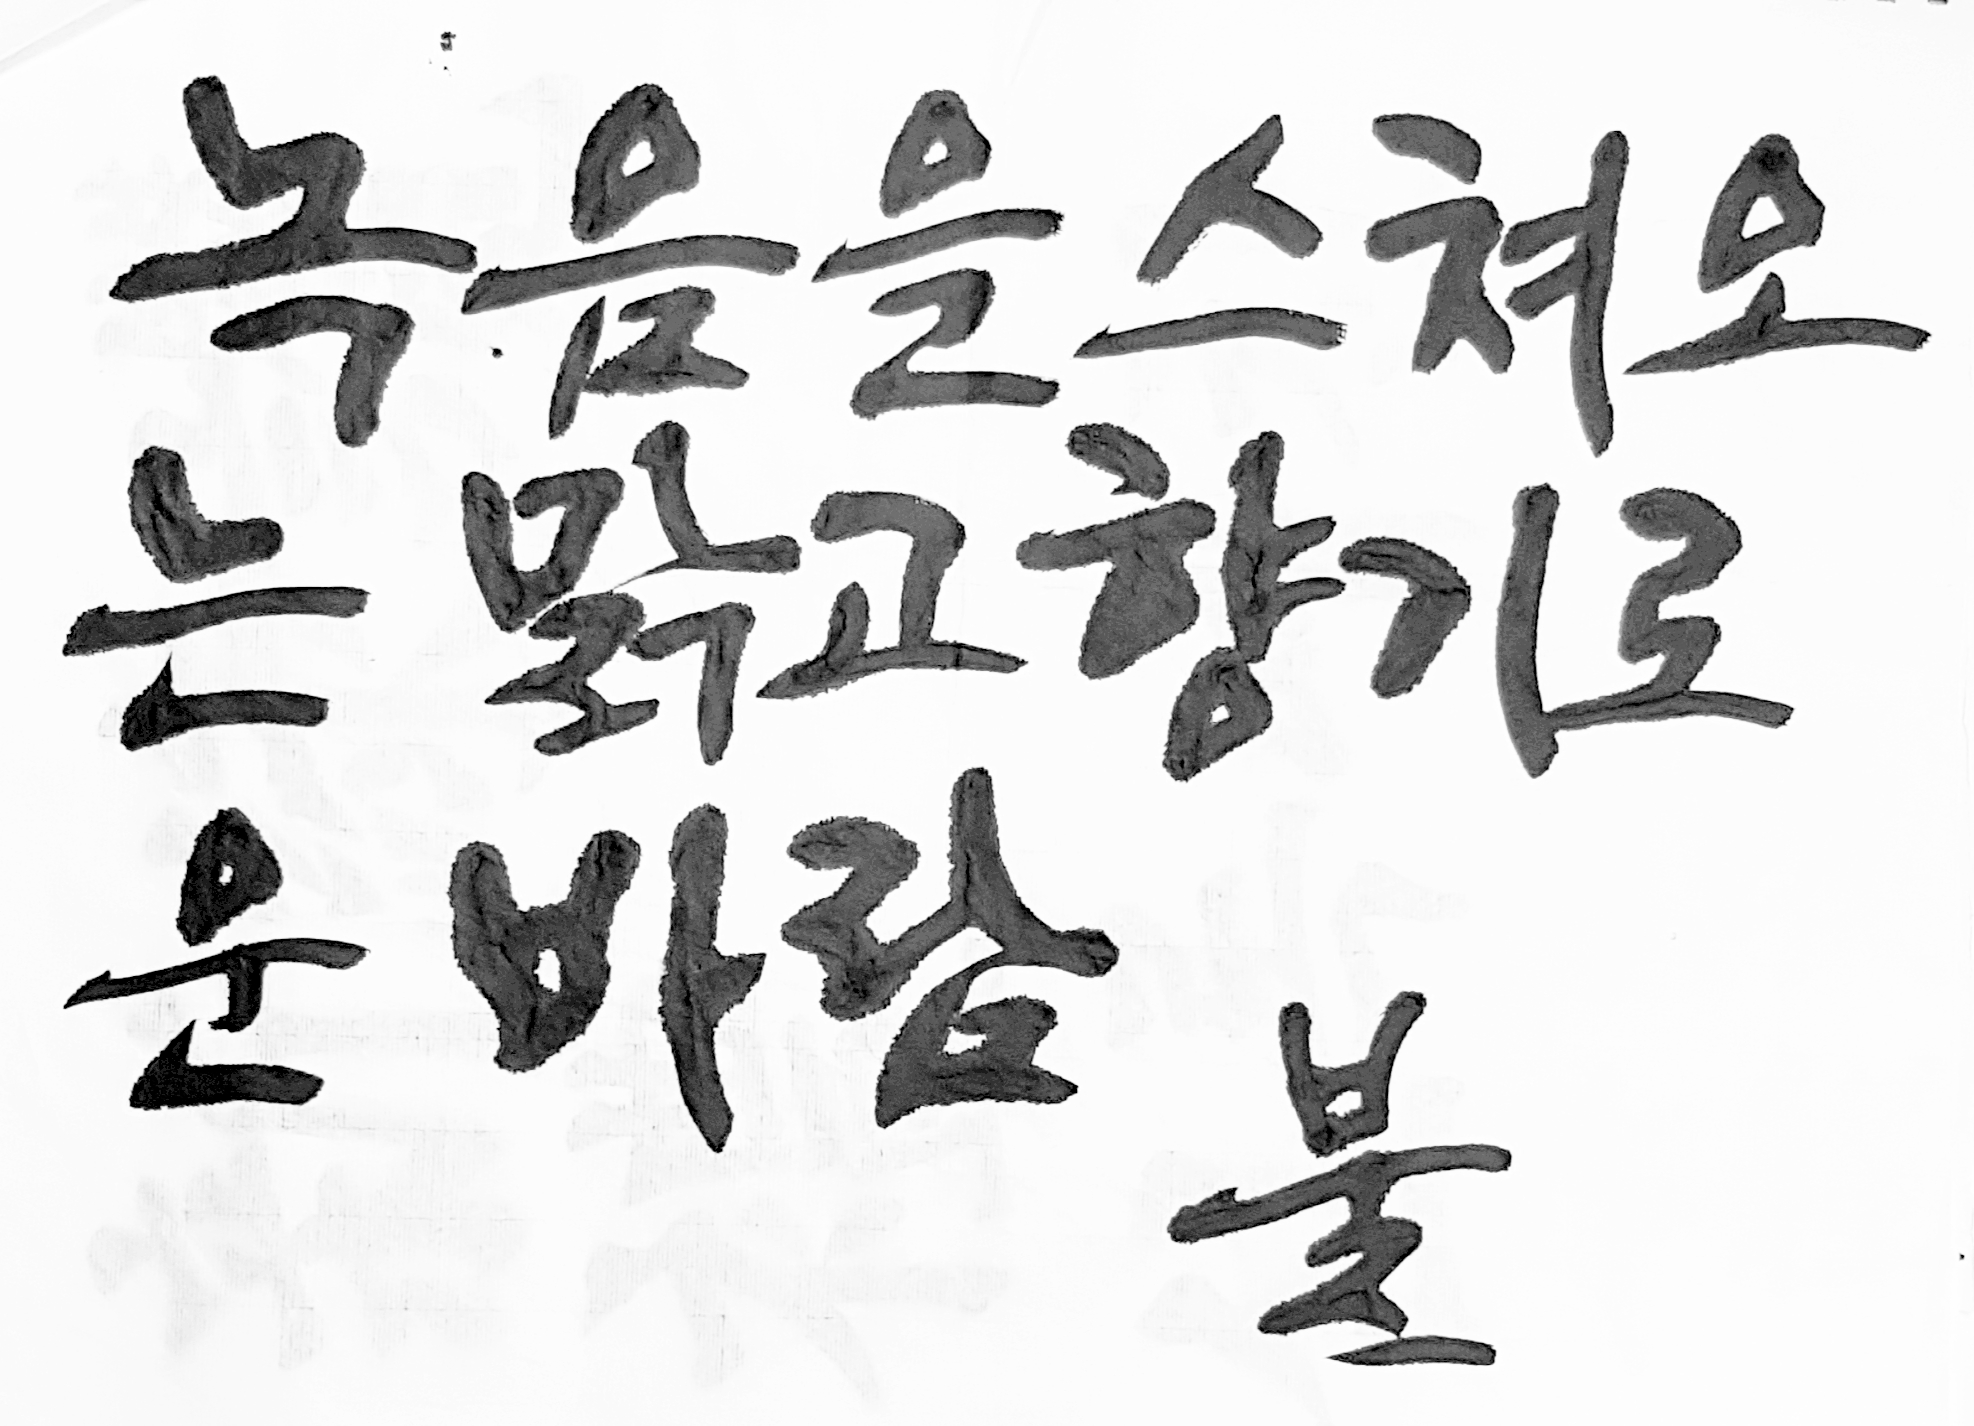 녹음을 스쳐오
는 맑고 향기로
운 바람
불